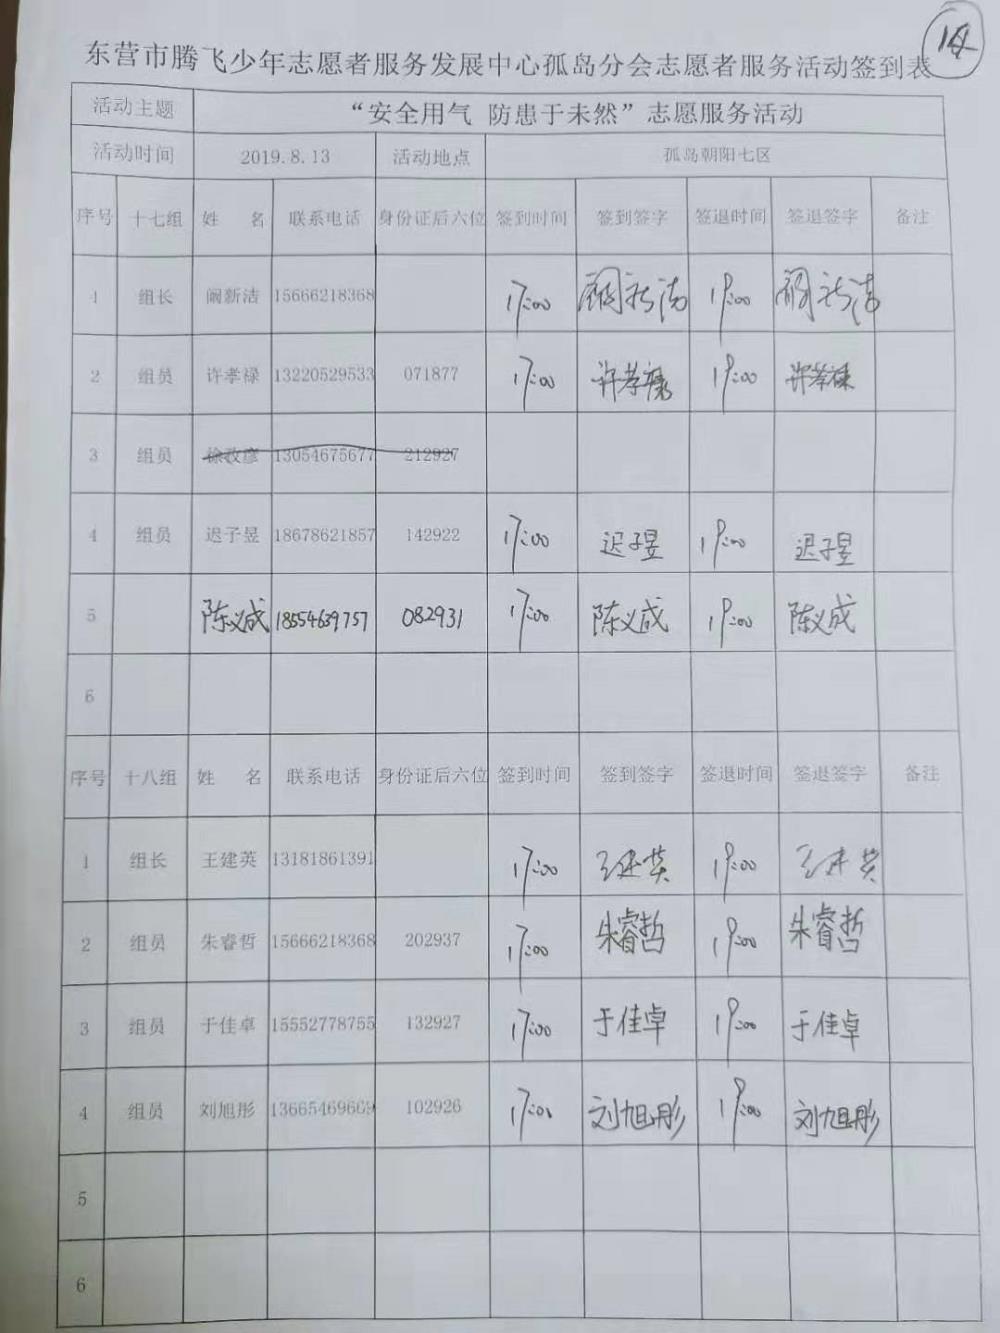 14
东营市腾飞少年志愿者服务发展中心孤岛分会志愿者服务活动签到表
活动主题 “安全用气 防患于未然”志愿服务活动
活动时间 2019.8.13 活动地点 孤岛朝阳七区
序号 十七组 姓 名 联系电话 身份证后六位 签到时间 签到签字 签退时间 签退签字 备注
1 组长 阚新洁 15666218368 17:00 阚新洁 19:00 阚新洁
2 组员 许孝禄 13220529533 071877 17:00 许孝禄 19:00 许孝禄
3 组员 徐孜彦 13054675677 212927
4 组员 迟子昱 18678621857 142922 17:00 迟子昱 19:00 迟子昱
5 陈义成 18554639757 082931 17:00 陈义成 19:00 陈义成
6
序号 十八组 姓 名 联系电话 身份证后六位 签到时间 签到签字 签退时间 签退签字 备注
1 组长 王建英 13181861391 17:00 王建英 19:00 王建英
2 组员 朱睿哲 15666218368 202937 17:00 朱睿哲 19:00 朱睿哲
3 组员 于佳卓 15552778755 132927 17:00 于佳卓 19:00 于佳卓
4 组员 刘旭彤 13665469669 102926 17:00 刘旭彤 19:00 刘旭彤
5
6